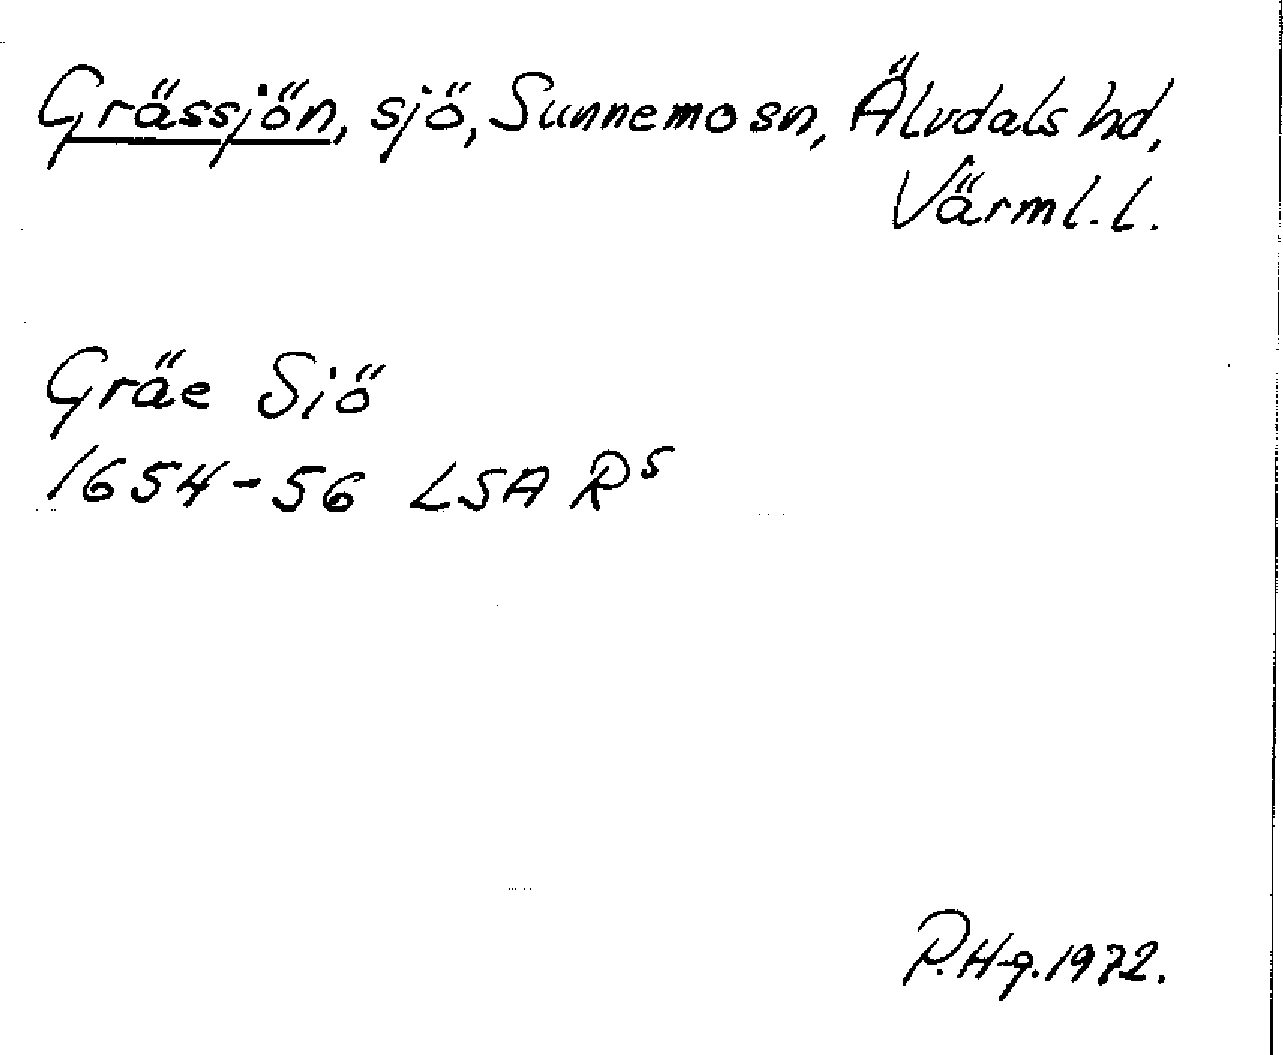 Grässjön, sjö, Sunnemo sn, Älvdals hd,
Värml. l.
Gräe Siö
1654-56 LSA R⁵
P.H-g. 1972.